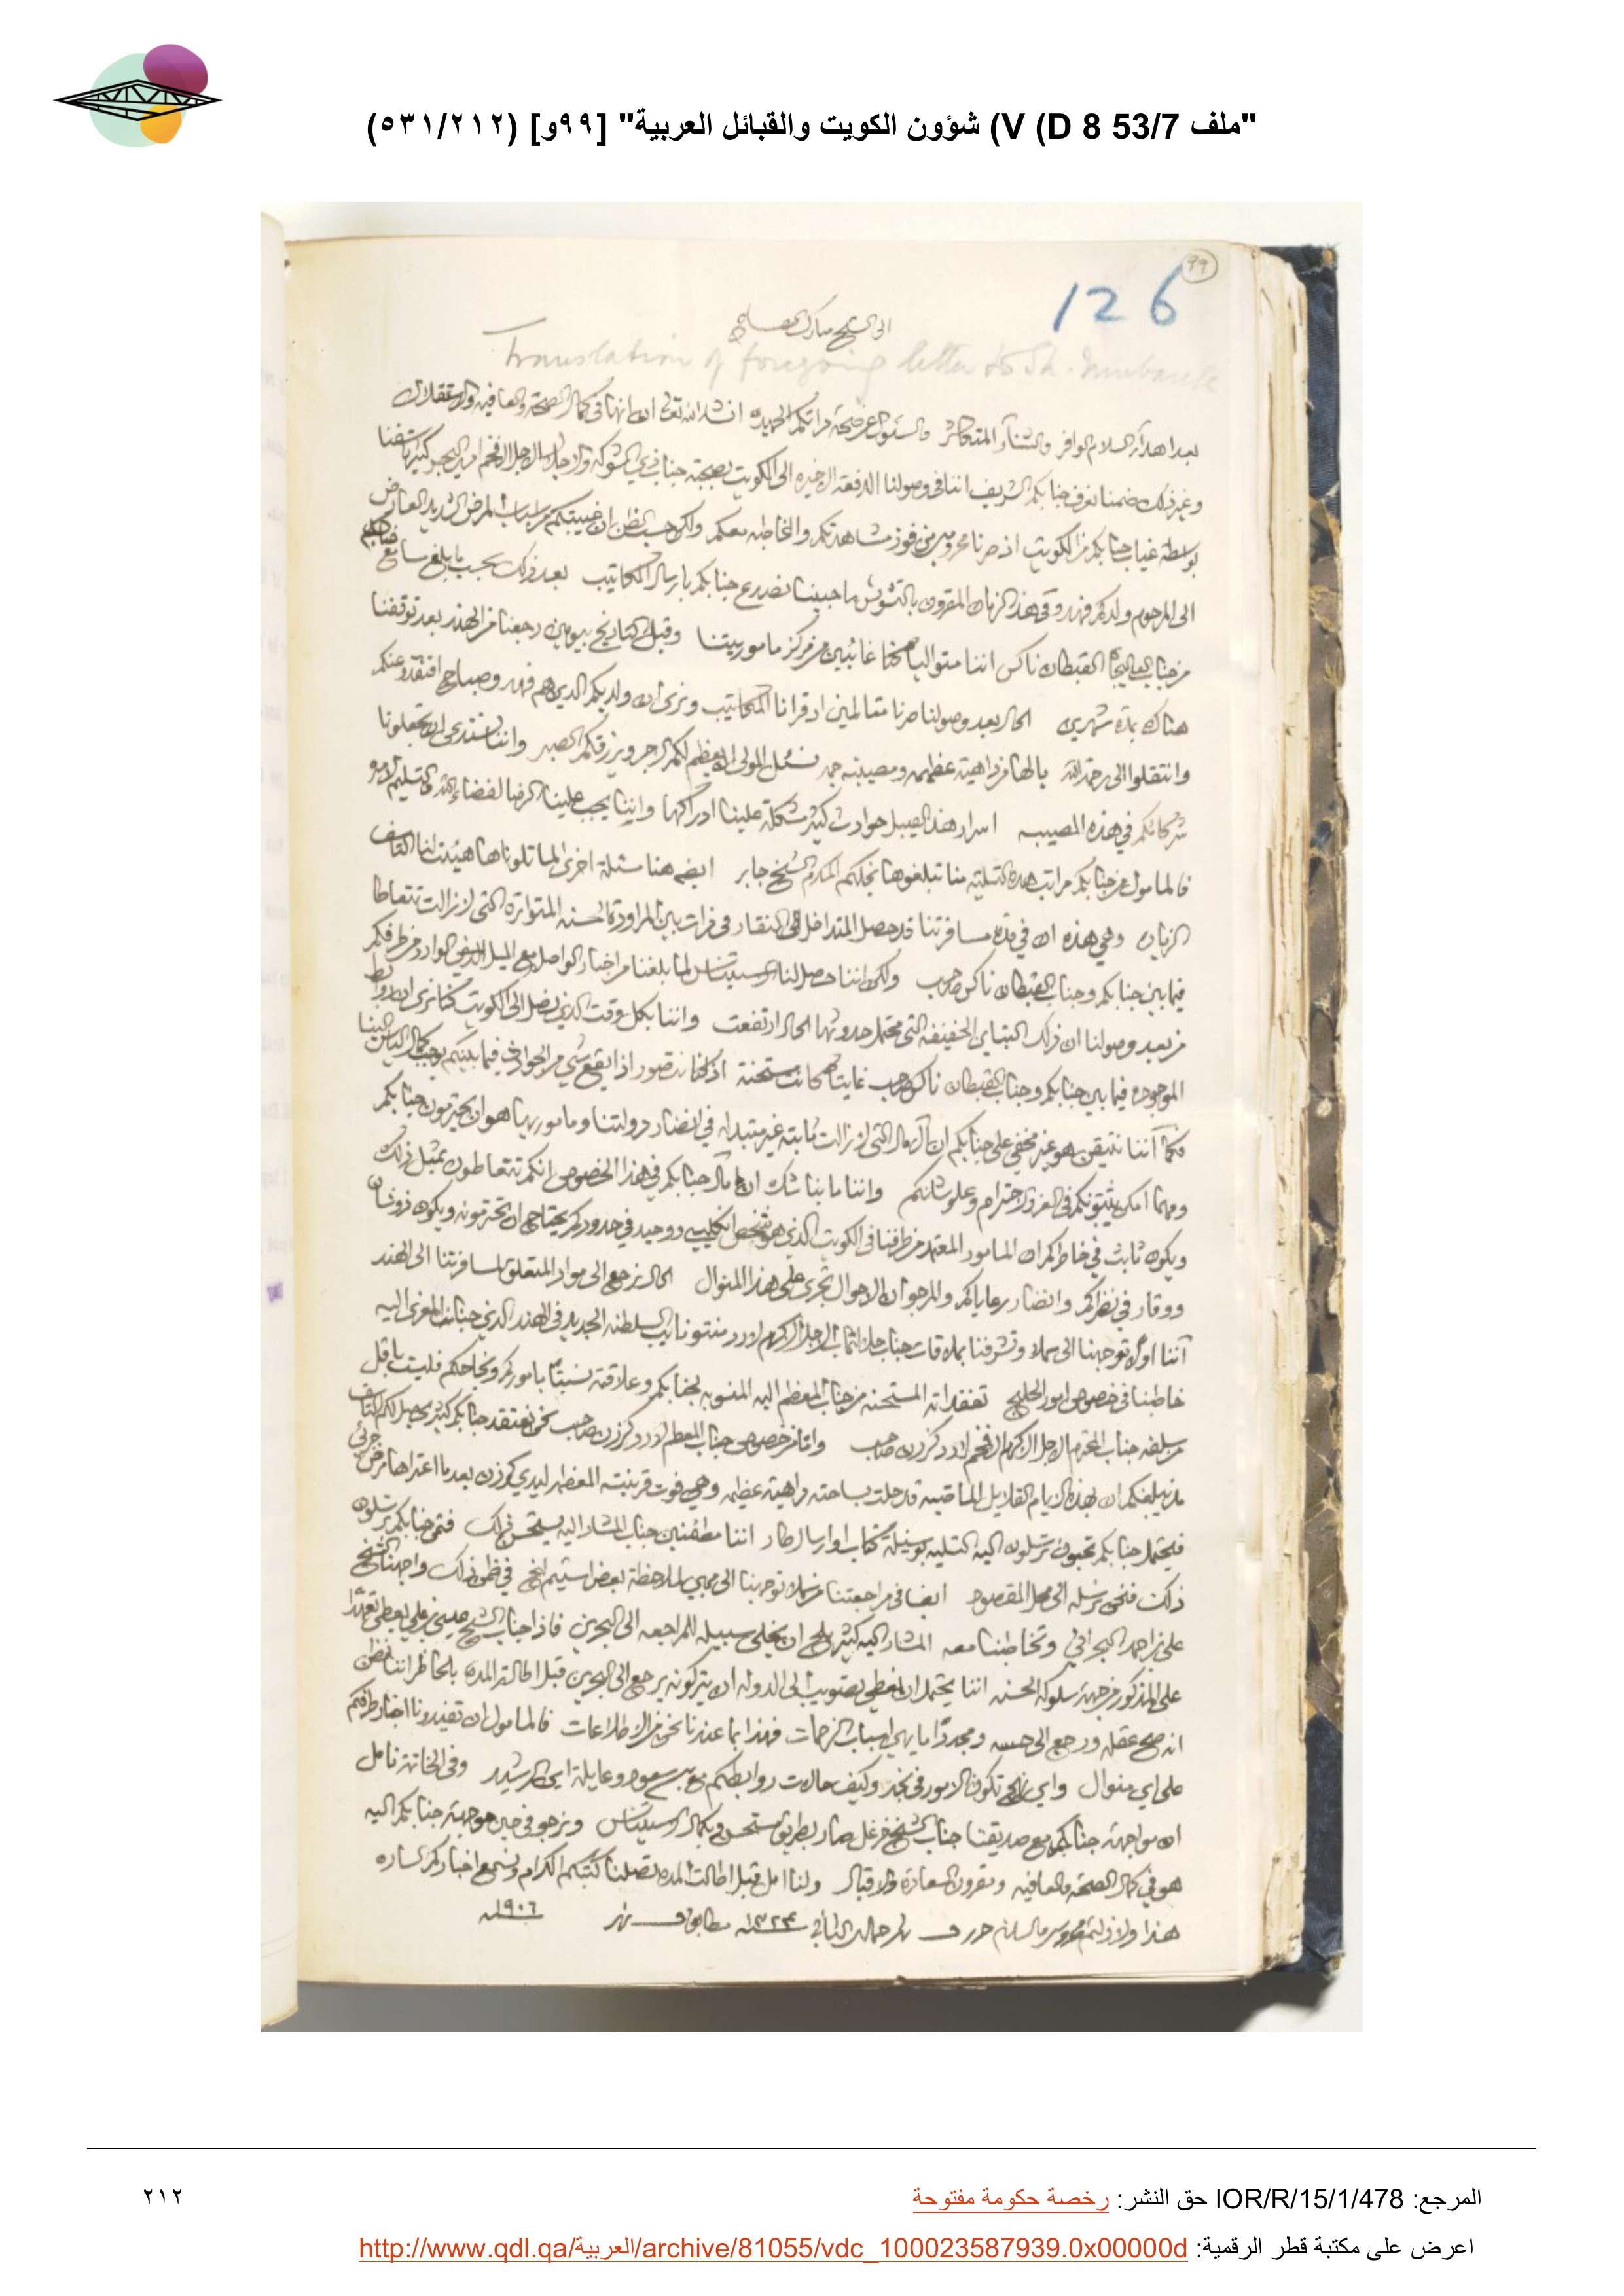 "ملف 53/7 V (D 8) شؤون الكويت والقبائل العربية" [٩٩و] (٥٣١/٢١٢)
٩٩
126
الى الشيخ مبارك الصباح
Translation of foregoing letter to Sh. Mubarak
بعد اهداء السلام الوافر والثناء المتكاثر والسئوال عن صحة ذاتكم الحميده انشاء الله تعالى ان انها في كمال الصحة والعافيه والاستقلال
وغير ذلك ضمنا نعرف جنابكم الشريف اننا في وصولنا الدفعة الاخيره الى الكويت بصحبة جناب الاجل الافخم امير البحر كثير تأسفنا
بواسطة غياب جنابكم من الكويت اذ صرنا محرومين من فوز مشاهدتكم والمخاطبه معكم ولكن حسب الظن ان غيبتكم من اسباب المرض الشديد العارض
الى المرحوم ولدكم فهد وفي هذا الزمان المقرون بالتشويش ما حبينا نصدع جنابكم بارسال المكاتيب بعد ذلك بحسب ما بلغ مسامع جنابكم
من جناب القبطان ناكس اننا متواليا كنا غائبين من مركز ماموريتنا وقبل التاريخ بيومين رجعنا من الهند بعد توقفنا
هناك مدة شهرين الحال بعد وصولنا صرنا متألمين اذ قرانا المكاتيب ونرى ان ولديكم الذين هم فهد وصباح افتقدو منكم
وانتقلوا الى رحمة الله يالها من داهية عظيمه ومصيبه نسئل المولى ان يعظم لكم الاجر ويرزقكم الصبر واننا نستدعي ان تجعلونا
شركائكم في هذه المصيبه اسرار هذا القبيل حوادث كثير مشكلة علينا ادراكها واننا يجب علينا الرضا لقضاء الله والتسليم لامره
فالمامول من جنابكم مراتب هذه التسلية منا تبلغوها نجلكم المكرم الشيخ جابر ايضا هنا مسئلة اخرى لما تلوناها هيئت لنا التاسف
الزياد وهي هذه ان في مدة مسافرتنا قد حصل التداخل في فترات بين المراودة الحسنه المتواترة التي لا زالت تتعاطا
فيما بين جنابكم وجناب القبطان ناكس صاحب ولكن اننا حصل لنا الاستيناس لما بلغنا من اخبار الواصل مع الميل الوارد من طرفكم
من بعد وصولنا ان ذلك التباين الخفيفة التي محتمل حدوثها الحال ارتفعت واننا بكل وقت الذي نصل الى الكويت كنا نرى ان روابط
الموجوده فيما بين جنابكم وجناب القبطان ناكس صاحب غايتا كانت مستحسنة
ومهما امكن يثبتونكم في العز والاحترام وعلو شانكم واننا ما بنا شك ان امال جنابكم في هذا الخصوص انكم تتعاطون بمثل ذلك
ويكون ثابت في خاطركم ان المامور المعتمد من طرفنا في الكويت الذي هو شخص انكليسي ووحيد في حدودكم يحتاج ان تحترمونه ويكون ذو شان
ووقار في نظركم وانظار رعاياكم والمرجو ان الاحوال تجرى على هذا المنوال الحال نرجع الى مواد المتعلق لمسافرتنا الى الهند
اننا اولا توجهنا الى سملا وتشرفنا بملاقات جناب الاجل الاكرم لورد منتو نايب السلطنه الجديد في الهند الذي جناب المعزى اليه
خاطبنا في خصوص امور الخليج
من سلفه جناب المحترم الاجل الاكرم الافخم لورد كرزن صاحب
مذ نبلغكم ان بهذه الايام القلايل الماضيه قد حلت بساحته داهية عظيمه وهي فوت قرينته المعظمه ليدي كرزن بعد ما اعتراها مرض جزئي
فيحتمل جنابكم تحبون ترسلون اليه التسليه بوسيلة كتاب او ارسال تار اننا مطمئنين جناب المشار اليه يستحسن ذلك فمتى جنابكم ترسلون
ذلك فنحن نرسله الى محل المقصود ايضا في مراجعتنا من سملا توجهنا الى بمبي لملاحظة بعض في ضمن ذلك واجهنا الشيخ
علي بن احمد البحراني وتخاطبنا معه المشار اليه كثير يلح ان يخلى سبيله للمراجعه الى البحرين فاذا جناب الشيخ عيسى بن علي يعطي تعهدا
على المذكور من جهة سلوكه الحسنه اننا يحتمل ان نعطي تصويب الى الدوله ان يتركونه يرجع الى البحرين قبل اطالة المده بالخاطر اننا نظن
انه صح عقله ورجع الى حسه ومجددا ما يهيئ اسباب الزحمات فهذا بما عندنا نحن من الاطلاعات فالمامول ان تفيدونا اخبار طرفكم
على اي منوال واي نهج تكون الامور في نجد وكيف حالات روابطكم مع بن سعود وعايلة ابن الرشيد وفي الخاتمة نامل
ان مواجهة جنابكم مع صديقنا جناب الشيخ خزعل صار بطريق مستحسن وبكمال الاستيناس ونرجو في حين مواجهة جنابكم اليه
هو في كمال الصحة والعافيه ومقرون السعادة والاقبال ولنا امل قبل اطالت المده تصلنا كتبكم الكرام ونسمع اخباركم الساره
هذا ولا زلتم محروسين والسلام حرر في جمادى الثاني ١٣٢٤ مطابق ١٩٠٦
المرجع: IOR/R/15/1/478 حق النشر: رخصة حكومة مفتوحة
٢١٢
اعرض على مكتبة قطر الرقمية: http://www.qdl.qa/العربية/archive/81055/vdc_100023587939.0x00000d